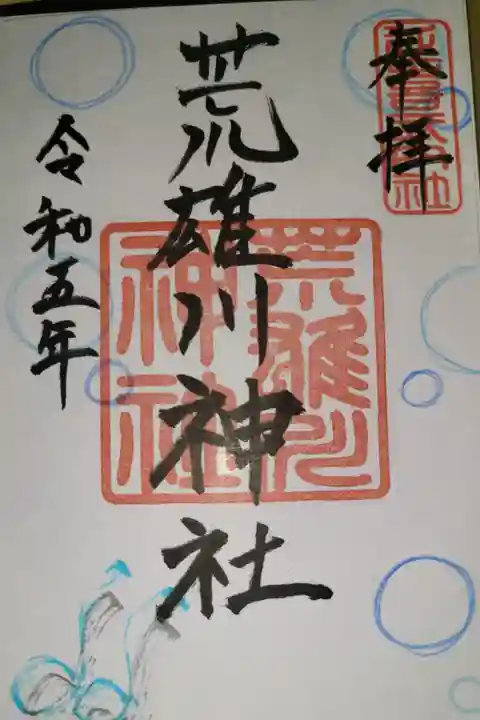 奉拝
荒雄川神社
荒雄川
神社
令和五年